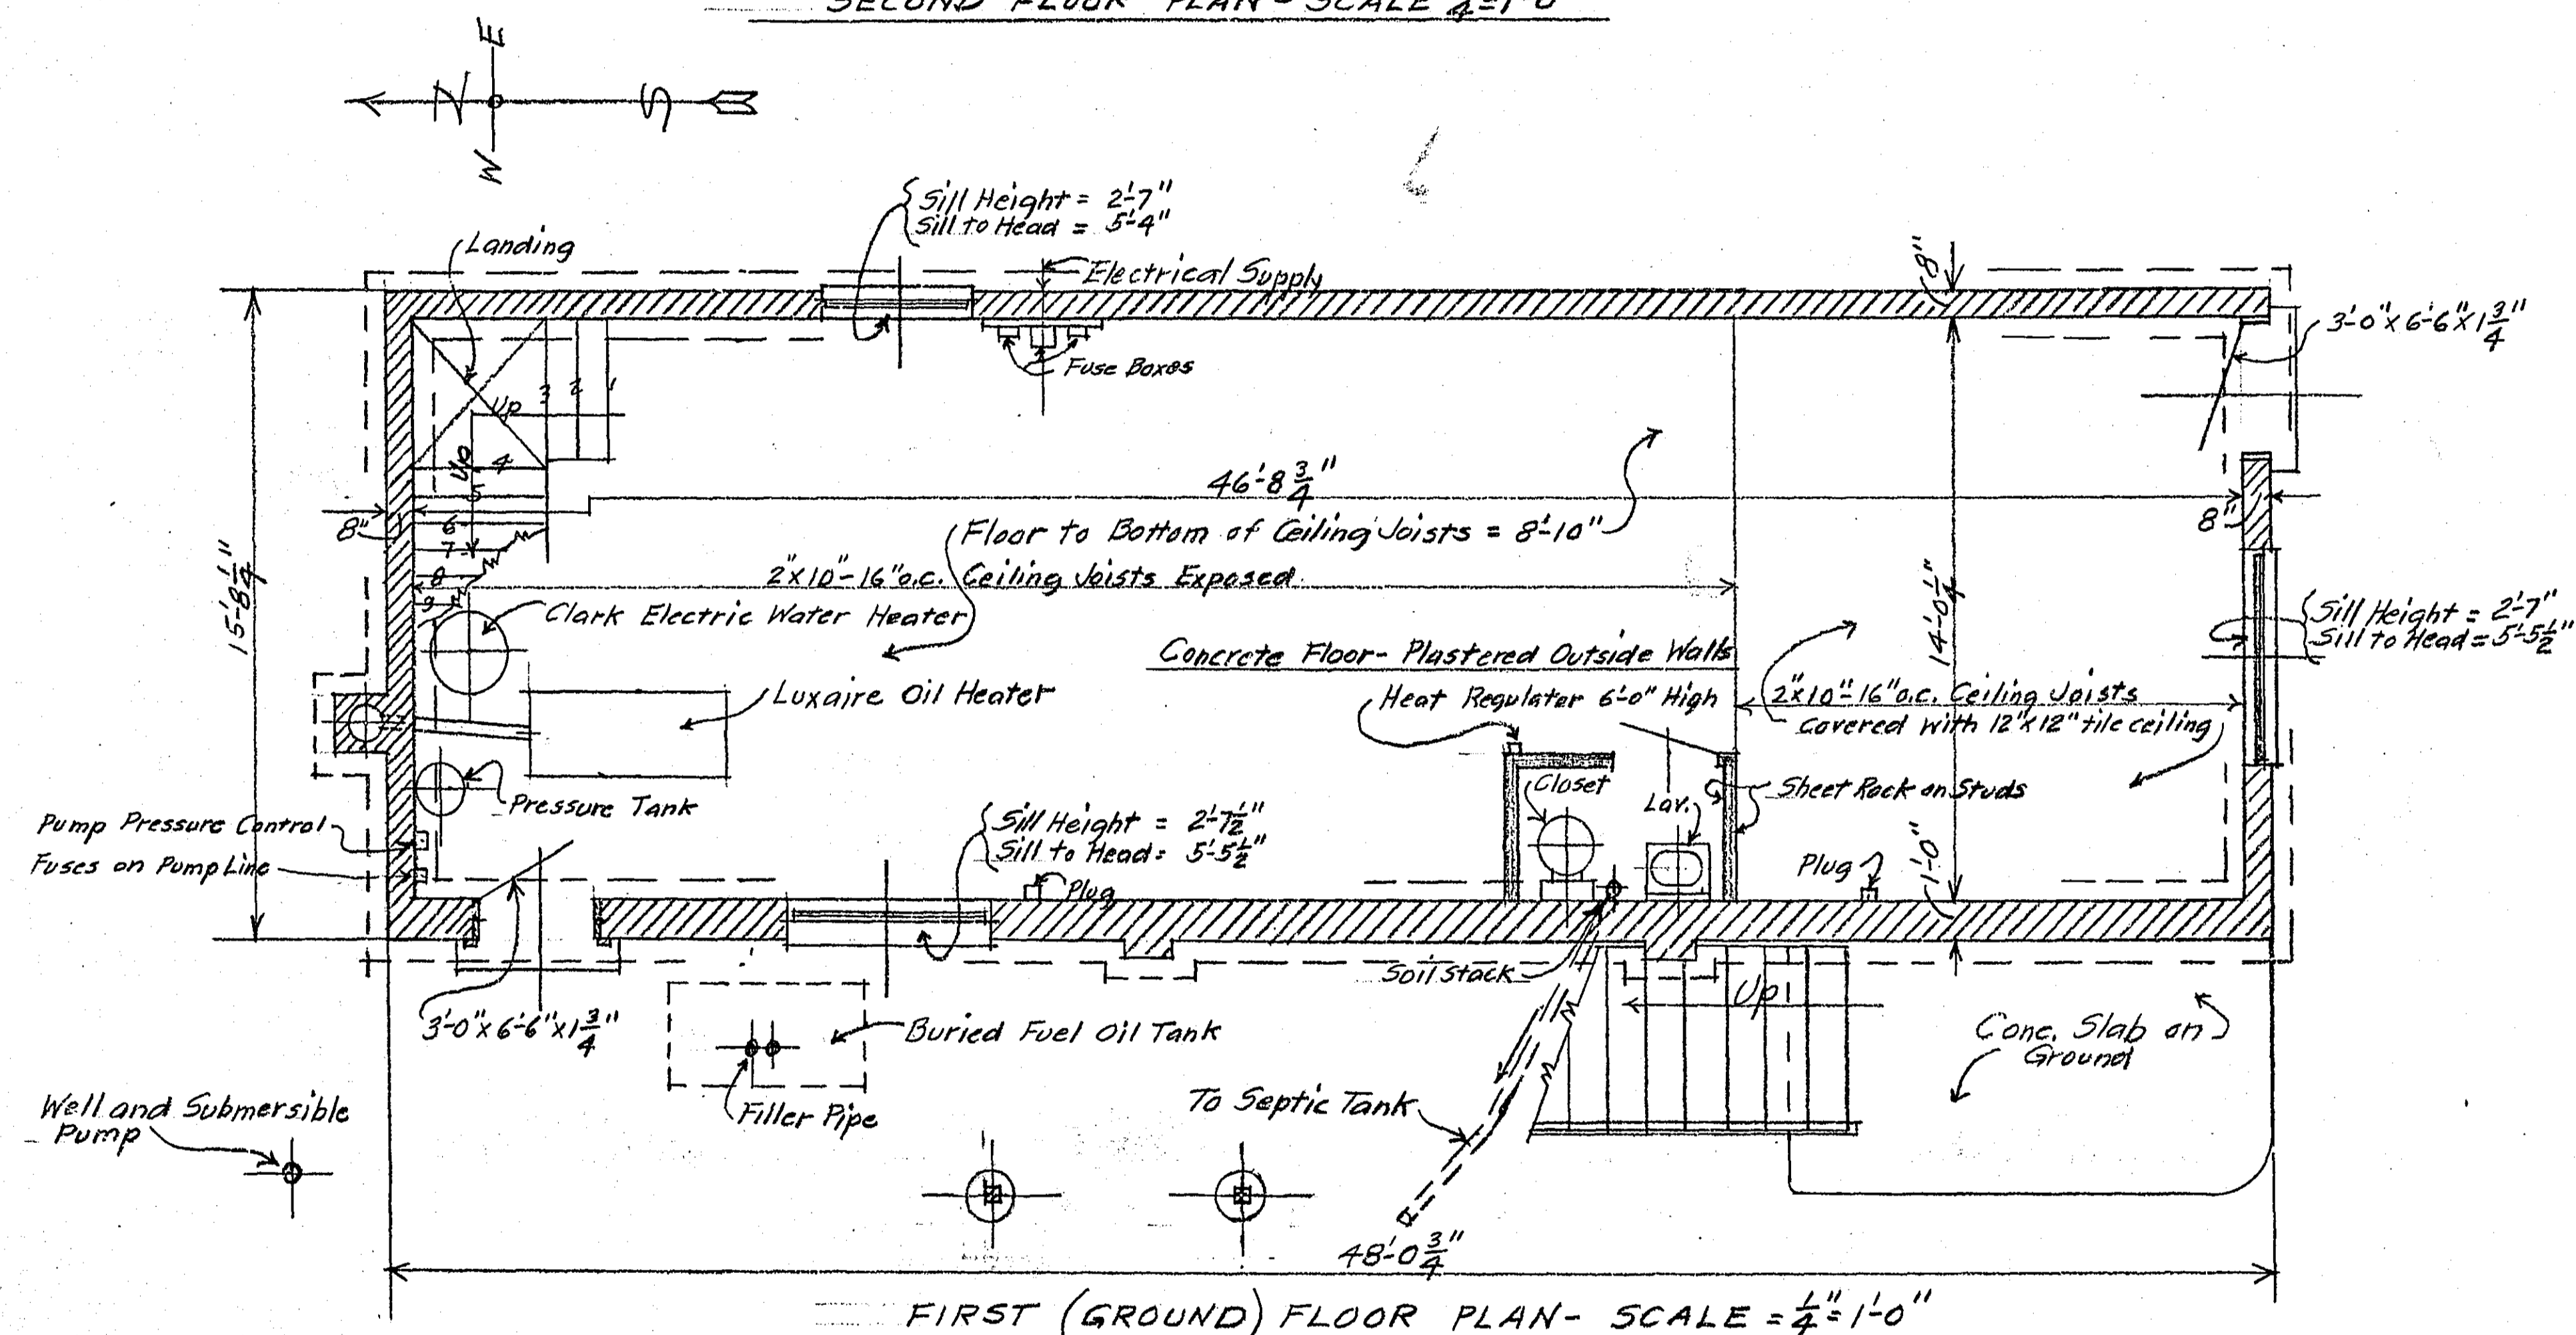 SECOND FLOOR PLAN - SCALE 1/4"=1'-0"
E
N
S
W
Sill Height = 2'-7"
Sill to Head = 5'-4"
Landing
Electrical Supply
8"
3'-0" x 6'-6" x 1 3/4"
Fuse Boxes
Up 3 2 1
Up 4
5
6
7
8
9
46'-8 3/4"
8"
8"
Floor to Bottom of Ceiling Joists = 8'-10"
15'-8 1/4"
2"x10"-16"o.c. Ceiling Joists Exposed
14'-0 1/4"
Clark Electric Water Heater
Sill Height = 2'-7"
Sill to Head = 5'-5 1/2"
Concrete Floor- Plastered Outside Walls
Luxaire Oil Heater
Heat Regulater 6'-0" High
2"x10"-16"o.c. Ceiling Joists
covered with 12"x12" tile ceiling
Pressure Tank
Closet
Lav.
Sheet Rock on Studs
Pump Pressure Control
Fuses on Pump Line
Sill Height = 2'-7 1/2"
Sill to Head = 5'-5 1/2"
Plug
Plug
1'-0"
Soil stack
Up
3'-0" x 6'-6" x 1 3/4"
Buried Fuel Oil Tank
Conc. Slab on
Ground
Filler Pipe
To Septic Tank
Well and Submersible
Pump
48'-0 3/4"
FIRST (GROUND) FLOOR PLAN- SCALE = 1/4"=1'-0"